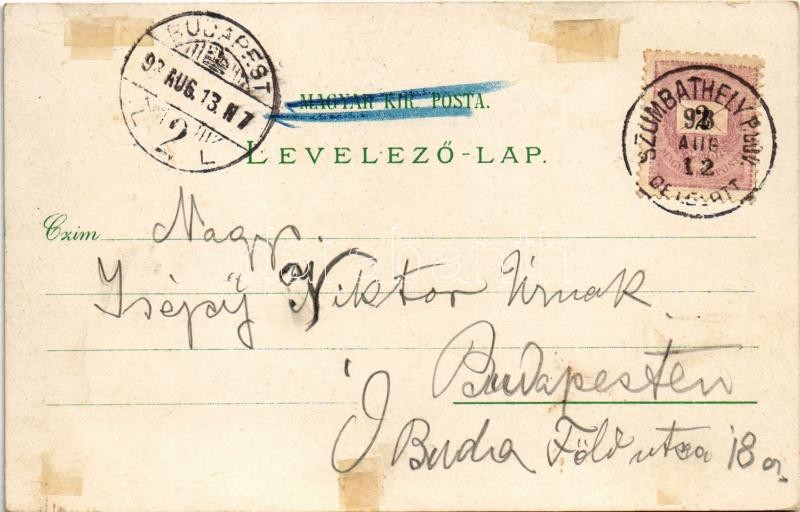 BUDAPEST
AUG. 13. N7
2
L
MAGYAR KIR. POSTA.
SZOMBATHELY P.UDV.
2
98
AUG
12
LEVELEZŐ-LAP.
Czim Nagys.
Viktor Úrnak
Budapesten
Ó Buda Föld utca 18 a.